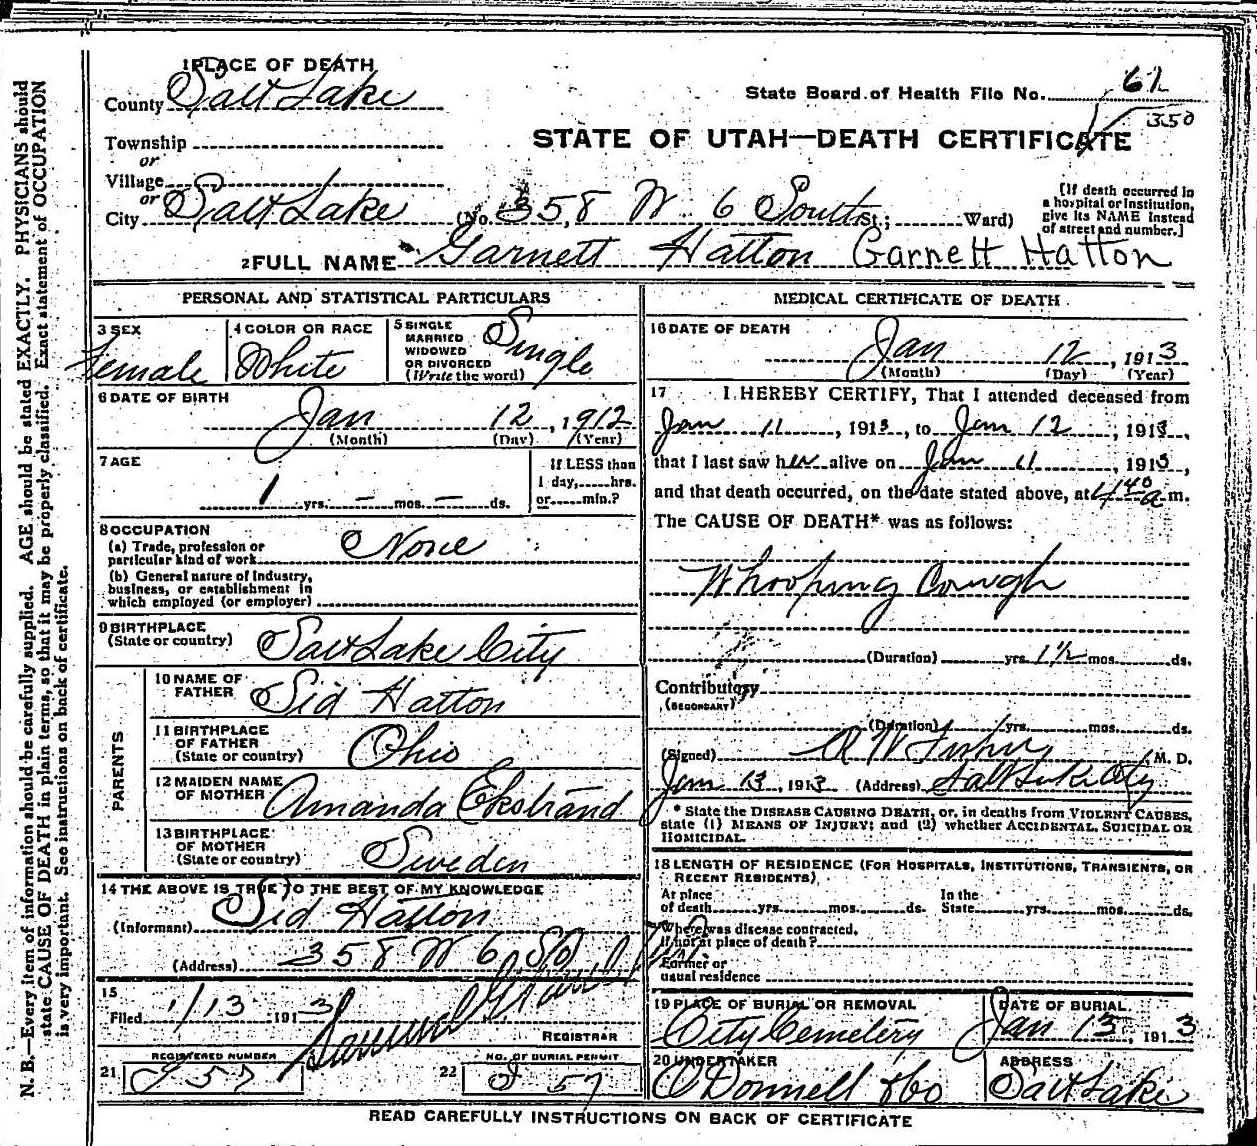 1 PLACE OF DEATH
County Salt Lake
State Board of Health File No. 61
350
STATE OF UTAH—DEATH CERTIFICATE
Township
or
Village
or
City Salt Lake (No. 358 W 6 South St.; Ward)
[If death occurred in
a hospital or institution,
give its NAME instead
of street and number.]
2 FULL NAME Garnett Hatton Garnett Hatton
PERSONAL AND STATISTICAL PARTICULARS
3 SEX
Female
4 COLOR OR RACE
White
5 SINGLE
MARRIED
WIDOWED
OR DIVORCED
(Write the word)
Single
6 DATE OF BIRTH
Jan 12, 1912
(Month) (Day) (Year)
7 AGE
1 yrs. — mos. — ds.
If LESS than
1 day, hrs.
or min.?
8 OCCUPATION
(a) Trade, profession or
particular kind of work None
(b) General nature of industry,
business, or establishment in
which employed (or employer)
9 BIRTHPLACE
(State or country) Salt Lake City
PARENTS
10 NAME OF
FATHER Sid Hatton
11 BIRTHPLACE
OF FATHER
(State or country) Ohio
12 MAIDEN NAME
OF MOTHER Amanda Ekstrand
13 BIRTHPLACE
OF MOTHER
(State or country) Sweden
14 THE ABOVE IS TRUE TO THE BEST OF MY KNOWLEDGE
(Informant) Sid Hatton
(Address) 358 W 6 So
15
Filed 1/13 1913
REGISTRAR
REGISTERED NUMBER
21 J 57
NO. OF BURIAL PERMIT
22 J 57
MEDICAL CERTIFICATE OF DEATH
16 DATE OF DEATH
Jan 12, 1913
(Month) (Day) (Year)
17 I HEREBY CERTIFY, That I attended deceased from
Jan 11, 1913, to Jan 12, 1913,
that I last saw her alive on Jan 11, 1913,
and that death occurred, on the date stated above, at 4 40 a m.
The CAUSE OF DEATH* was as follows:
Whooping Cough
(Duration) yrs. 1½ mos. ds.
Contributory
(SECONDARY)
(Duration) yrs. mos. ds.
(Signed) A W Fisher M. D.
Jan 13, 1913 (Address) Salt Lake City
* State the DISEASE CAUSING DEATH, or, in deaths from VIOLENT CAUSES,
state (1) MEANS OF INJURY; and (2) whether ACCIDENTAL, SUICIDAL OR
HOMICIDAL.
18 LENGTH OF RESIDENCE (FOR HOSPITALS, INSTITUTIONS, TRANSIENTS, OR
RECENT RESIDENTS)
At place
of death yrs. mos. ds.
In the
State yrs. mos. ds.
Where was disease contracted,
if not at place of death?
Former or
usual residence
19 PLACE OF BURIAL OR REMOVAL
City Cemetery
DATE OF BURIAL
Jan 13, 1913
20 UNDERTAKER
O'Donnell & Co
ADDRESS
Salt Lake
READ CAREFULLY INSTRUCTIONS ON BACK OF CERTIFICATE
N. B.—Every item of information should be carefully supplied. AGE should be stated EXACTLY. PHYSICIANS should
state CAUSE OF DEATH in plain terms, so that it may be properly classified. Exact statement of OCCUPATION
is very important. See instructions on back of certificate.